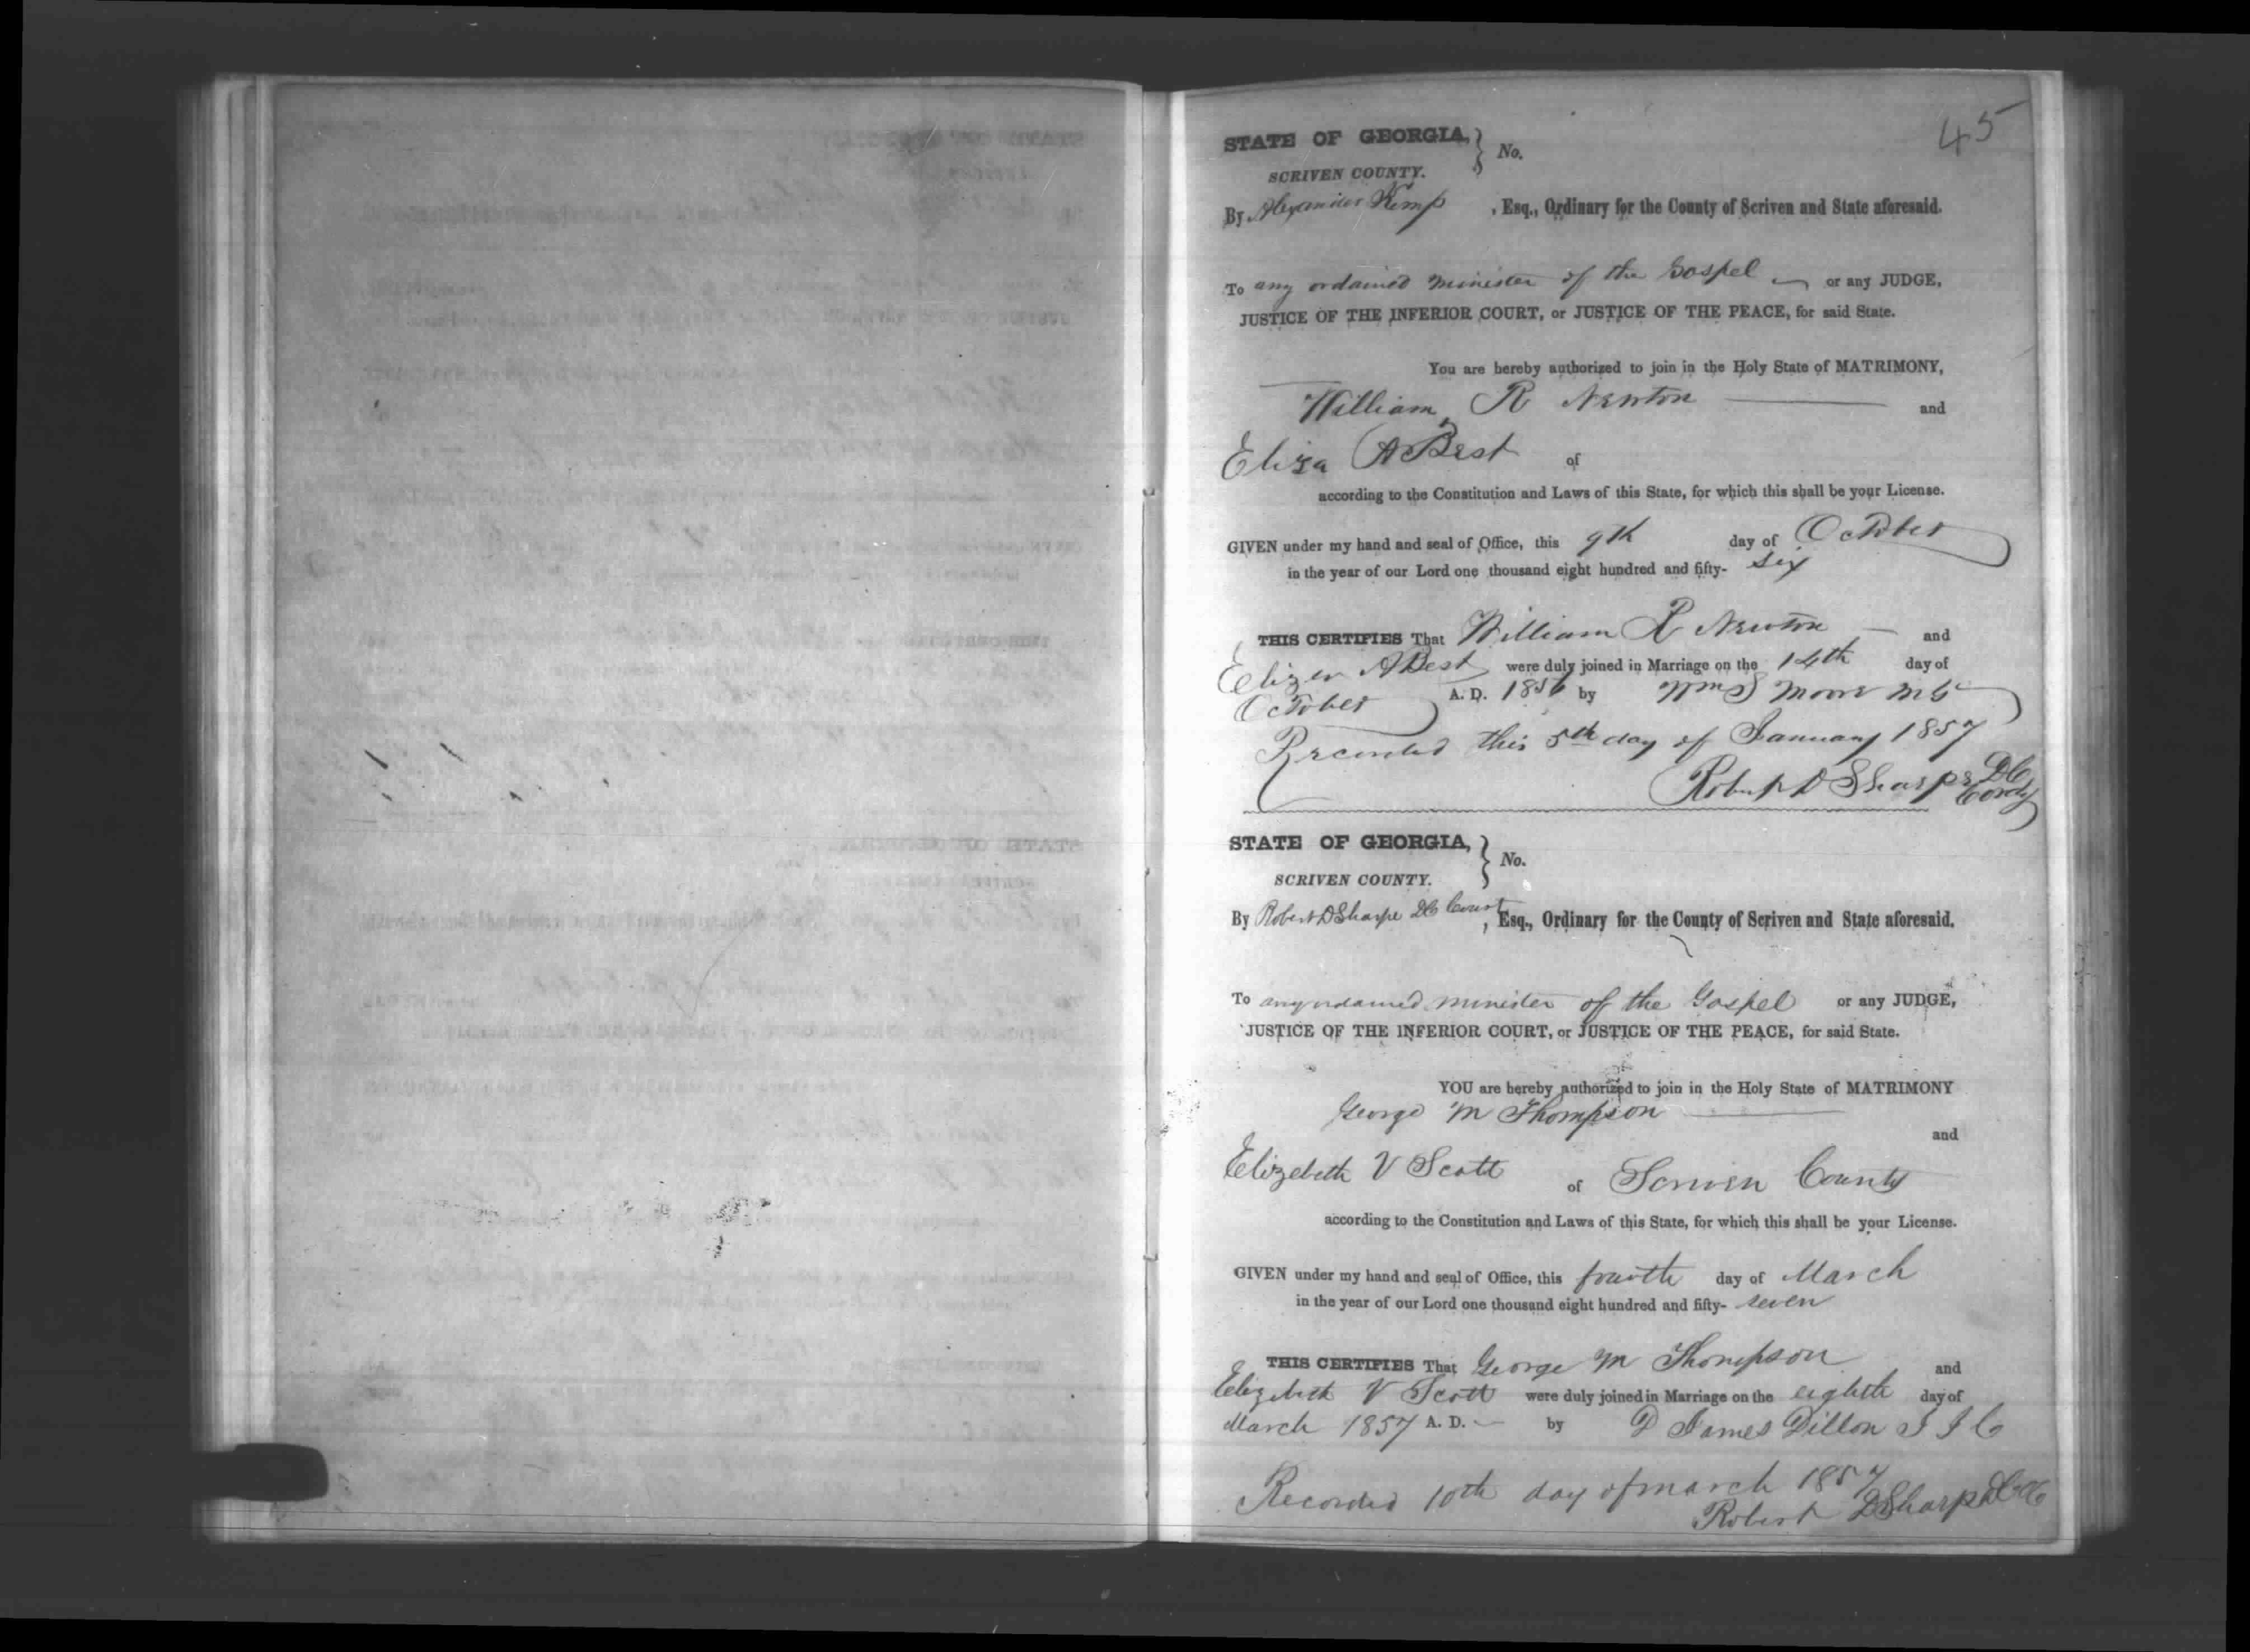 45
STATE OF GEORGIA, } No.
SCRIVEN COUNTY.
By Alexander Kemp , Esq., Ordinary for the County of Scriven and State aforesaid.
To any ordained minister of the Gospel or any JUDGE,
JUSTICE OF THE INFERIOR COURT, or JUSTICE OF THE PEACE, for said State.
You are hereby authorized to join in the Holy State of MATRIMONY,
William R Newton and
Eliza A Best of
according to the Constitution and Laws of this State, for which this shall be your License.
GIVEN under my hand and seal of Office, this 9th day of October
in the year of our Lord one thousand eight hundred and fifty- six
THIS CERTIFIES That William R Newton and
Eliza A Best were duly joined in Marriage on the 14th day of
October A. D. 1856 by Wm S Moore M G
Recorded this 5th day of January 1857
Robert D Sharpe DC
STATE OF GEORGIA, } No.
SCRIVEN COUNTY.
By Robert D Sharpe DC Court, Esq., Ordinary for the County of Scriven and State aforesaid.
To any ordained minister of the Gospel or any JUDGE,
JUSTICE OF THE INFERIOR COURT, or JUSTICE OF THE PEACE, for said State.
YOU are hereby authorized to join in the Holy State of MATRIMONY
George M Thompson
and
Elizebeth V Scott of Scriven County
according to the Constitution and Laws of this State, for which this shall be your License.
GIVEN under my hand and seal of Office, this fourth day of March
in the year of our Lord one thousand eight hundred and fifty- seven
THIS CERTIFIES That George M Thompson and
Elizebeth V Scott were duly joined in Marriage on the eighth day of
March 1857 A. D. by D James Dillon J I C
Recorded 10th day of march 1857
Robert D Sharpe